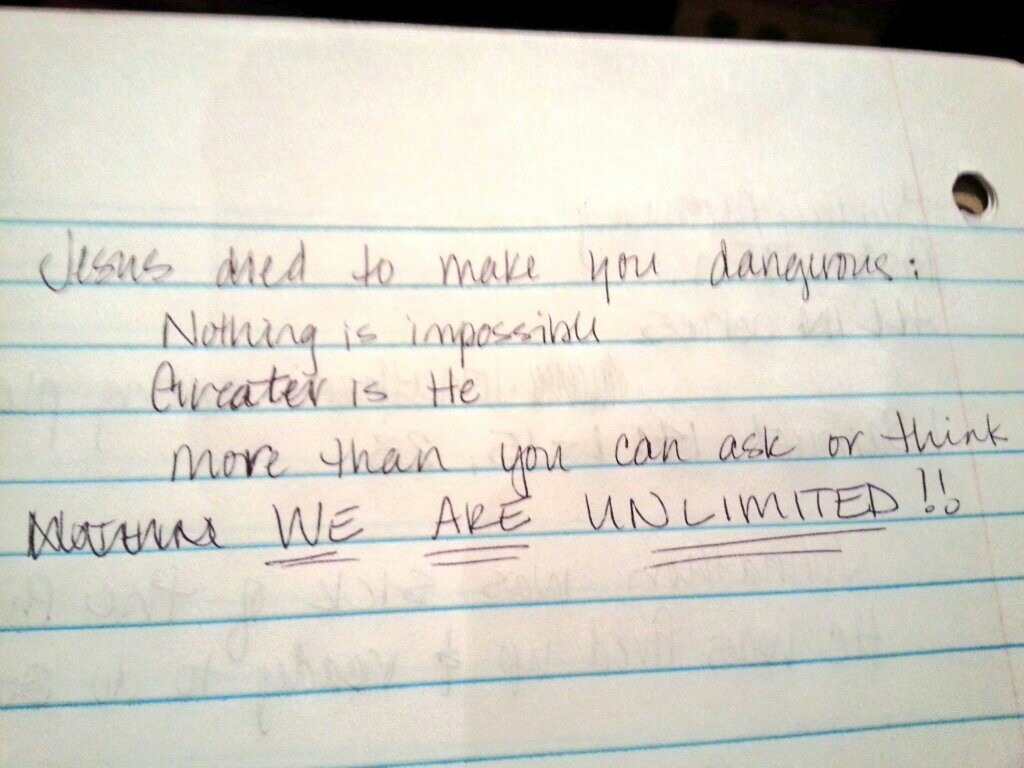 Jesus died to make you dangerous:
Nothing is impossible
Greater is He
more than you can ask or think
WE ARE UNLIMITED!!